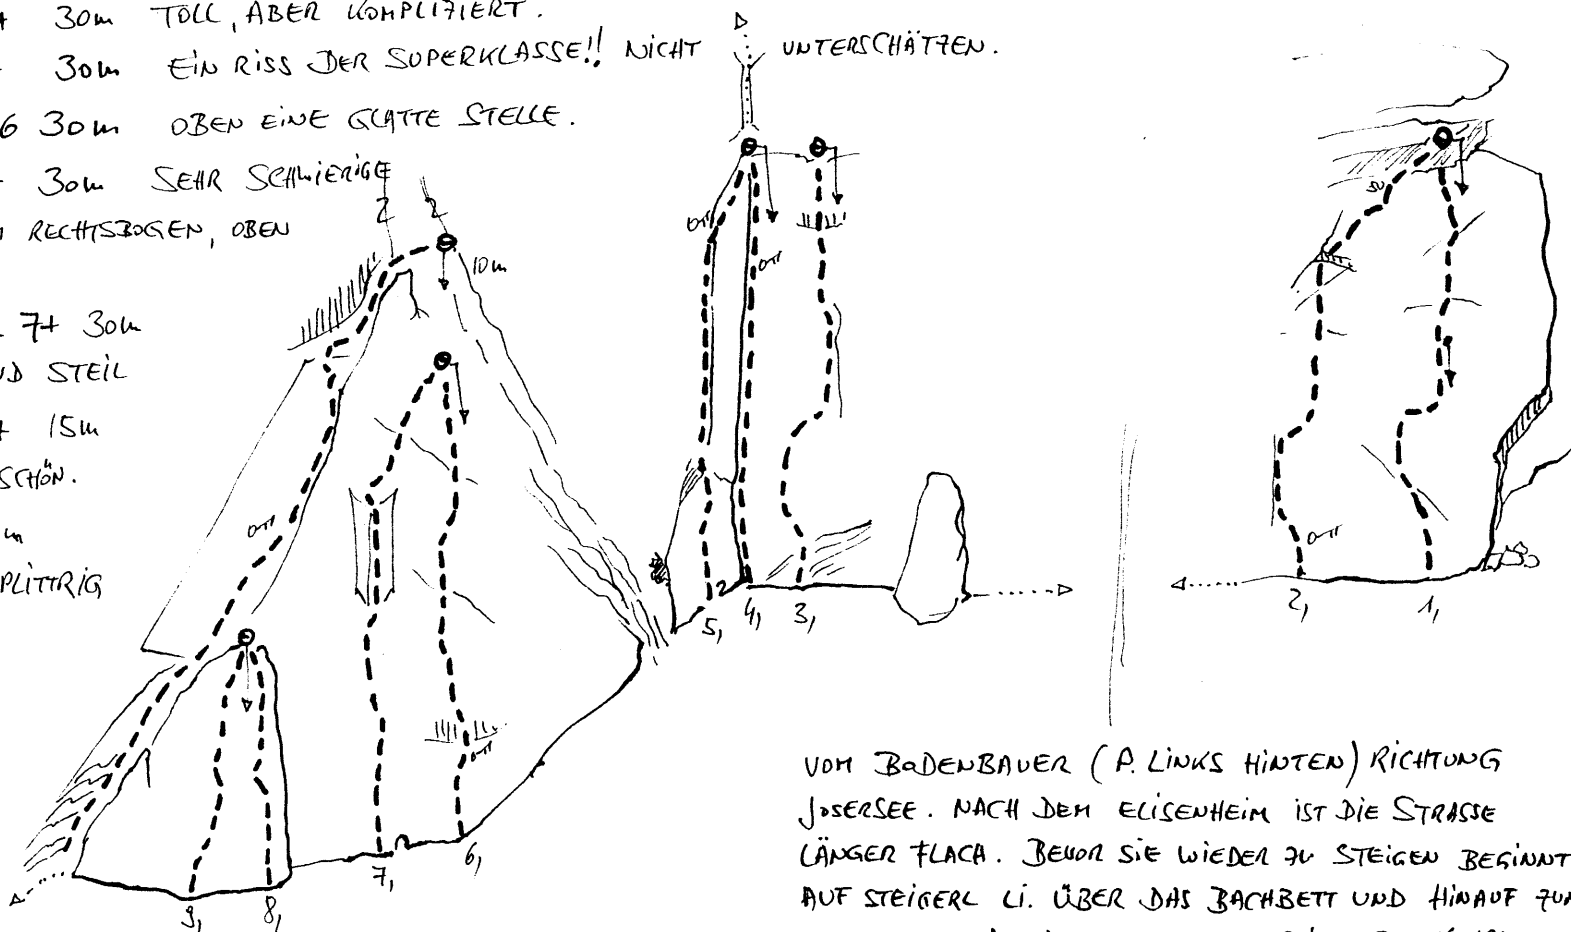 + 30m TOLL, ABER KOMPLIZIERT.
30m EIN RISS DER SUPERKLASSE!! NICHT UNTERSCHÄTZEN.
6 30m OBEN EINE GLATTE STELLE.
30m SEHR SCHWIERIGE
RECHTSBOGEN, OBEN
7+ 30m
ND STEIL
+ 15m
SCHÖN.
m
PLITTRIG
10m
5, 4, 3,
2, 1,
7, 6,
9, 8,
VOM BODENBAUER (P. LINKS HINTEN) RICHTUNG
JOSERSEE. NACH DEM ELISENHEIM IST DIE STRASSE
LÄNGER FLACH. BEVOR SIE WIEDER ZU STEIGEN BEGINNT
AUF STEIGERL LI. ÜBER DAS BACHBETT UND HINAUF ZUM